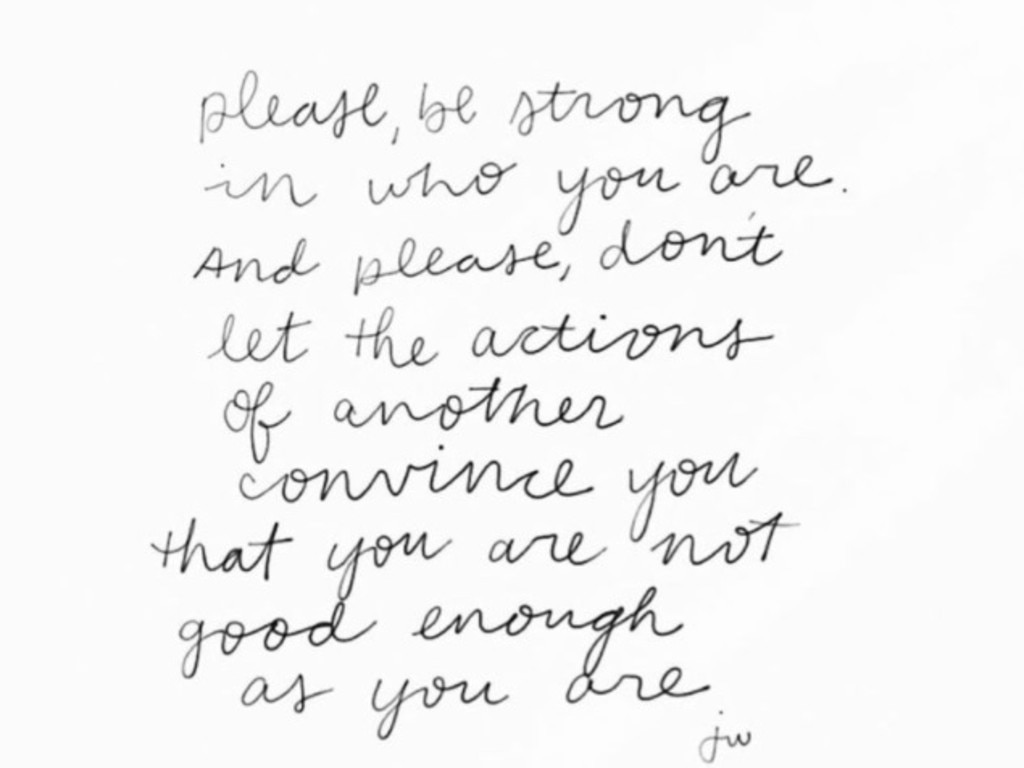 please, be strong
in who you are.
And please, don't
let the actions
of another
convince you
that you are not
good enough
as you are
jw